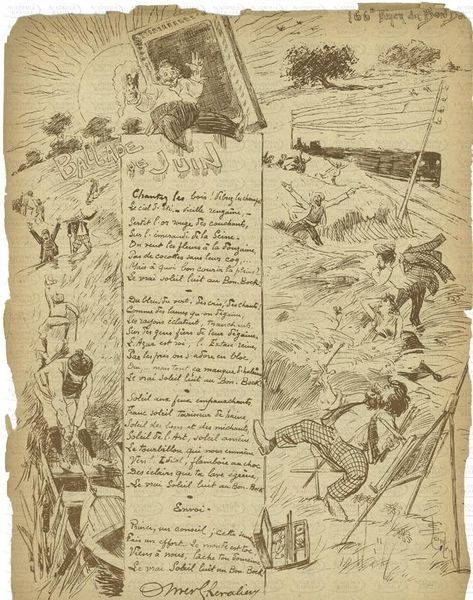 166e Dîner du Bon Bock
BALLADE DE JUIN
Chantez les bois! Vibrez les champs
Le ciel d'Été, – vieille rengaine, –
Sertit l'or rouge des couchants,
Sur l'émeraude de la Seine;
On vend les fleurs à la douzaine,
Pas de cocottes sans leur coq,
Mais à quoi bon courir la plaine?
Le vrai soleil luit au Bon-Bock
Du bleu, du vert, des cris, des chants,
Comme des lames qu'on dégaine,
Les rayons éclatent, tranchants
Sur les gens fiers de leur dégaine,
L'Azur est roi, l'Extase reine,
Par les prés on s'adore en bloc,
Oui, mais tout ça manque d'
Le vrai soleil luit au Bon-Bock
Soleil aux feux empanachants,
Franc soleil tarisseur de haine
Soleil des bons et des méchants,
Soleil de l'Art, soleil
Le tourbillon que nous emmène
Vers l'Idéal, flamboie au choc
Des éclairs que ta lave égrène,
Le vrai Soleil luit au Bon-Bock
Envoi.
Prince, un conseil; cette
Fais un effort. Le monde est toc
Viens à nous, lâche ton domaine
Le vrai Soleil luit au Bon-Bock
Chevalier